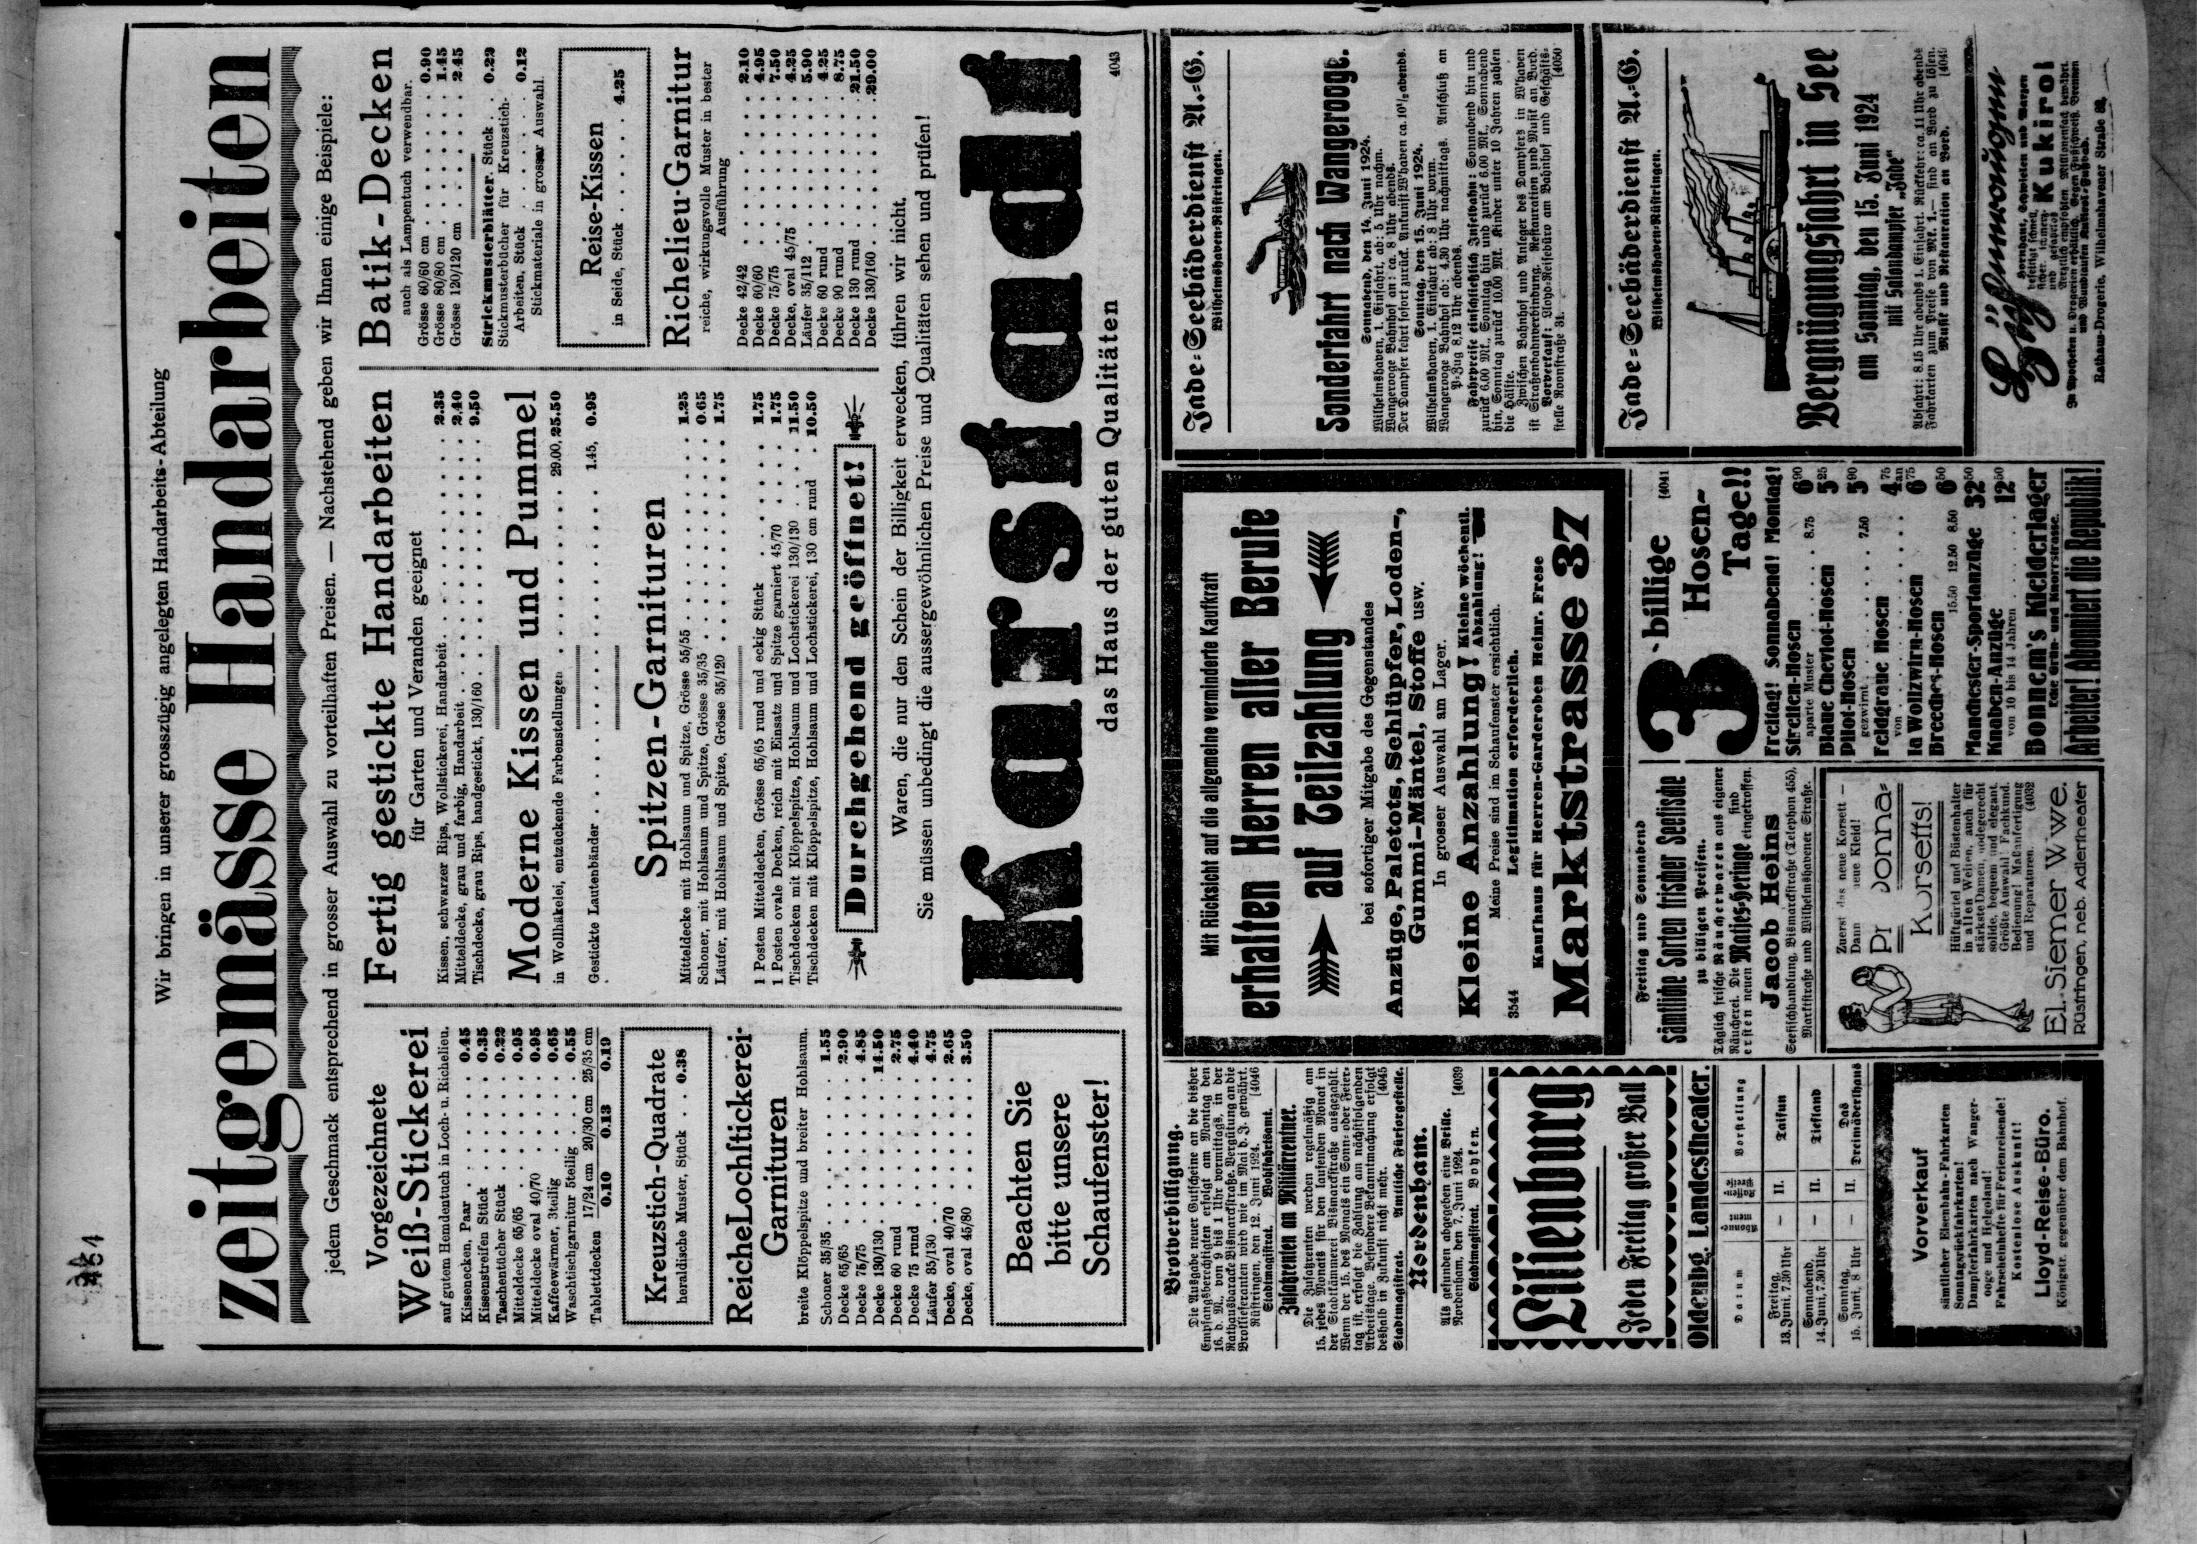 Wir bringen in unserer grosszügig angelegten Handarbeits-Abteilung
zeitgemässe Handarbeiten
jedem Geschmack entsprechend in grosser Auswahl zu vorteilhaften Preisen. — Nachstehend geben wir Ihnen einige Beispiele:
Vorgezeichnete
Weiß-Stickerei
auf gutem Hemdentuch in Loch- u. Richelieu.
Kissenecken, Paar . . . . . 0.45
Kissenstreifen Stück . . . . 0.35
Taschentücher Stück . . . . 0.22
Mitteldecke 65/65 . . . . . 0.95
Mitteldecke oval 40/70 . . . 0.95
Kaffewärmer, 3teilig . . . . 0.65
Waschtischgarnitur 5teilig . . 0.55
Tablettdecken 17/24 cm 20/30 cm 25/35 cm
0.10 0.13 0.19
Kreuzstich-Quadrate
heraldische Muster, Stück . . 0.38
Reiche Lochstickerei-
Garnituren
breite Klöppelspitze und breiter Hohlsaum.
Schoner 35/35 . . . . . . 1.55
Decke 65/65 . . . . . . 2.90
Decke 75/75 . . . . . . 4.85
Decke 130/130 . . . . . 14.50
Decke 60 rund . . . . . 2.75
Decke 75 rund . . . . . 4.40
Läufer 35/130 . . . . . 4.75
Decke, oval 40/70 . . . . 2.65
Decke, oval 45/80 . . . . 3.50
Beachten Sie
bitte unsere
Schaufenster!
Fertig gestickte Handarbeiten
für Garten und Veranden geeignet
Kissen, schwarzer Rips, Wollstickerei, Handarbeit . . . 2.35
Mitteldecke, grau und farbig, Handarbeit . . . 2.40
Tischdecke, grau Rips, handgestickt, 130/160 . . . 9.50
Moderne Kissen und Pummel
in Wollhäkelei, entzückende Farbenstellungen . . . 29.00, 25.50
Gestickte Lautenbänder . . . 1.45, 0.95
Spitzen-Garnituren
Mitteldecke mit Hohlsaum und Spitze, Grösse 55/55 . . . 1.25
Schoner, mit Hohlsaum und Spitze, Grösse 35/35 . . . 0.65
Läufer, mit Hohlsaum und Spitze, Grösse 35/120 . . . 1.75
1 Posten Mitteldecken, Grösse 65/65 rund und eckig Stück . . . 1.75
1 Posten ovale Decken, reich mit Einsatz und Spitze garniert 45/70 . . . 1.75
Tischdecken mit Klöppelspitze, Hohlsaum und Lochstickerei 130/130 . . . 11.50
Tischdecken mit Klöppelspitze, Hohlsaum und Lochstickerei, 130 cm rund . 10.50
Durchgehend geöffnet!
Batik-Decken
auch als Lampentuch verwendbar.
Grösse 60/60 cm . . . . 0.90
Grösse 80/80 cm . . . . 1.45
Grösse 120/120 cm . . . 2.45
Strickmusterblätter, Stück . . 0.22
Stickmusterbücher für Kreuzstich-
Arbeiten, Stück . . . . . 0.12
Stickmateriale in grosser Auswahl.
Reise-Kissen
in Seide, Stück . . . . . 4.25
Richelieu-Garnitur
reiche, wirkungsvolle Muster in bester
Ausführung
Decke 42/42 . . . . . 2.10
Decke 60/60 . . . . . 4.95
Decke 75/75 . . . . . 7.50
Decke, oval 45/75 . . . . 4.25
Läufer 35/112 . . . . . 5.90
Decke 60 rund . . . . . 4.25
Decke 90 rund . . . . . 8.75
Decke 130 rund . . . . . 21.50
Decke 130/160 . . . . . 29.00
Waren, die nur den Schein der Billigkeit erwecken, führen wir nicht.
Sie müssen unbedingt die aussergewöhnlichen Preise und Qualitäten sehen und prüfen!
Karstadt
das Haus der guten Qualitäten
4043
Brotverbilligung.
Die Ausgabe neuer Gutscheine an die bisher
Empfangsberechtigten erfolgt am Montag den
16. d. M., von 9 bis 1 Uhr vormittags, in der
Rathausbarade Bismarckstraße. Vergütung an die
Brotlieferanten wird wie im Mai d. J. gewährt.
Rüstringen, den 12. Juni 1924. [4046
Stadtmagistrat. Wohlfahrtsamt.
Zusatzrenten an Militärrentner.
Die Zusatzrenten werden regelmäßig am
15. jedes Monats für den laufenden Monat in
der Stadtkämmerei Bismarckstraße ausgezahlt.
Wenn der 15. des Monats ein Sonn- oder Feier-
tag ist, erfolgt die Zahlung am nächstfolgenden
Arbeitstage. Besondere Bekanntmachung erfolgt
deshalb in Zukunft nicht mehr. [4045
Stadtmagistrat. Amtliche Fürsorgestelle.
Nordenham.
Als gefunden abgegeben eine Brille.
Nordenham, den 7. Juni 1924. [4039
Stadtmagistrat. Bohlen.
Lilienburg
Jeden Freitag großer Ball
Oldenbg. Landestheater.
Datum Abonne-ment Kassen-Preise Vorstellung
Freitag,
13. Juni, 7.30 Uhr — II. Taifun
Sonnabend,
14. Juni, 7.30 Uhr — II. Tiefland
Sonntag,
15. Juni, 8 Uhr — II. Das
Dreimäderlhaus
Vorverkauf
sämtlicher Eisenbahn-Fahrkarten
Sonntagsrückfahrkarten!
Dampferfahrkarten nach Wanger-
ooge und Helgoland!
Fahrscheinhefte für Ferienreisende!
Kostenlose Auskunft!
Lloyd-Reise-Büro.
Königstr. gegenüber dem Bahnhof.
Mit Rücksicht auf die allgemeine verminderte Kaufkraft
erhalten Herren aller Berufe
auf Teilzahlung
bei sofortiger Mitgabe des Gegenstandes
Anzüge, Paletots, Schlüpfer, Loden-,
Gummi-Mäntel, Stoffe usw.
In grosser Auswahl am Lager.
Kleine Anzahlung! Kleine wöchentl. Abzahlung!
Meine Preise sind im Schaufenster ersichtlich.
3544 Legitimation erforderlich.
Kaufhaus für Herren-Garderoben Heinr. Frese
Marktstrasse 37
Freitag und Sonnabend
sämtliche Sorten frischer Seefische
zu billigen Preisen.
Täglich frische Räucherwaren aus eigener
Räucherei. Die Matjes-Heringe sind
ersten neuen eingetroffen.
Jacob Heins
Seefischhandlung, Bismarckstraße (Telephon 455),
Marktstraße und Wilhelmshavener Straße.
Zuerst das neue Korsett —
Dann neue Kleid!
Donna-
Korsetts!
Hüftgürtel und Büstenhalter
in allen Weiten, auch für
stärkste Damen, modegerecht
solide, bequem und elegant.
Größte Auswahl! Fachkund.
Bedienung! Maßanfertigung
und Reparaturen. (4032
El. Siemer Wwe.
Rüstringen, neb. Adlertheater
3 billige
Hosen-
Tage!!
[4041
Freitag! Sonnabend! Montag!
Streifen-Hosen 6.90
aparte Muster . . . . . 8.75
Blaue Cheviot-Hosen 5.25
Pilot-Hosen 3.90
gezwirnt . . . . . 7.50
Feldgraue Hosen 4.75
von . . . . . . an
Ia Wollzwirn-Hosen 6.75
Breeches-Hosen 6.50
15.50 12.50 8.50
Manchester-Sportanzüge 32.50
Knaben-Anzüge 12.50
von 10 bis 14 Jahren . . . .
Bonnem's Kleiderlager
Ecke Grün- und Knorrstrasse.
Arbeiter! Abonniert die Republik!
Jade-Seebäderdienst A.-G.
Wilhelmshaven-Rüstringen.
Sonderfahrt nach Wangerooge.
Sonnabend, den 14. Juni 1924.
Wilhelmshaven, 1. Einfahrt, ab: 5 Uhr nachm.
Wangerooge Bahnhof an: ca. 8 Uhr abends.
Der Dampfer kehrt sofort zurück. Ankunft W'haven ca. 10½ abends.
Sonntag, den 15. Juni 1924.
Wilhelmshaven, 1. Einfahrt ab: 8 Uhr vorm.
Wangerooge Bahnhof ab: 4.30 Uhr nachmittags. Anschluß an
D-Zug 8.12 Uhr abends.
Fahrpreise einschließlich Inselbahn: Sonnabend hin und
zurück 6.00 Mk., Sonntag hin und zurück 6.00 Mk., Sonnabend
hin, Sonntag zurück 10.00 Mk. Kinder unter 10 Jahren zahlen
die Hälfte.
Zwischen Bahnhof und Anleger des Dampfers in W'haven
ist Straßenbahnverbindung. Restauration und Musik an Bord.
Vorverkauf: Lloyd-Reisebüro am Bahnhof und Geschäfts-
stelle Roonstraße 31. [4050
Jade-Seebäderdienst A.-G.
Wilhelmshaven-Rüstringen.
Vergnügungsfahrt in See
am Sonntag, den 15. Juni 1924
mit Salondampfer „Jade“
Abfahrt: 8.15 Uhr abends 1. Einfahrt. Rückkehr: ca. 11 Uhr abends
Fahrkarten zum Preise von Mk. 1.— sind an Bord zu lösen.
Musik und Restauration an Bord. [4049
Hühneraugen
Hornhaut, Schwielen und Warzen
beseitigt schnell,
sicher, schmerz-
und gefahrlos Kukirol
Rathaus-Drogerie, Wilhelmshavener Straße